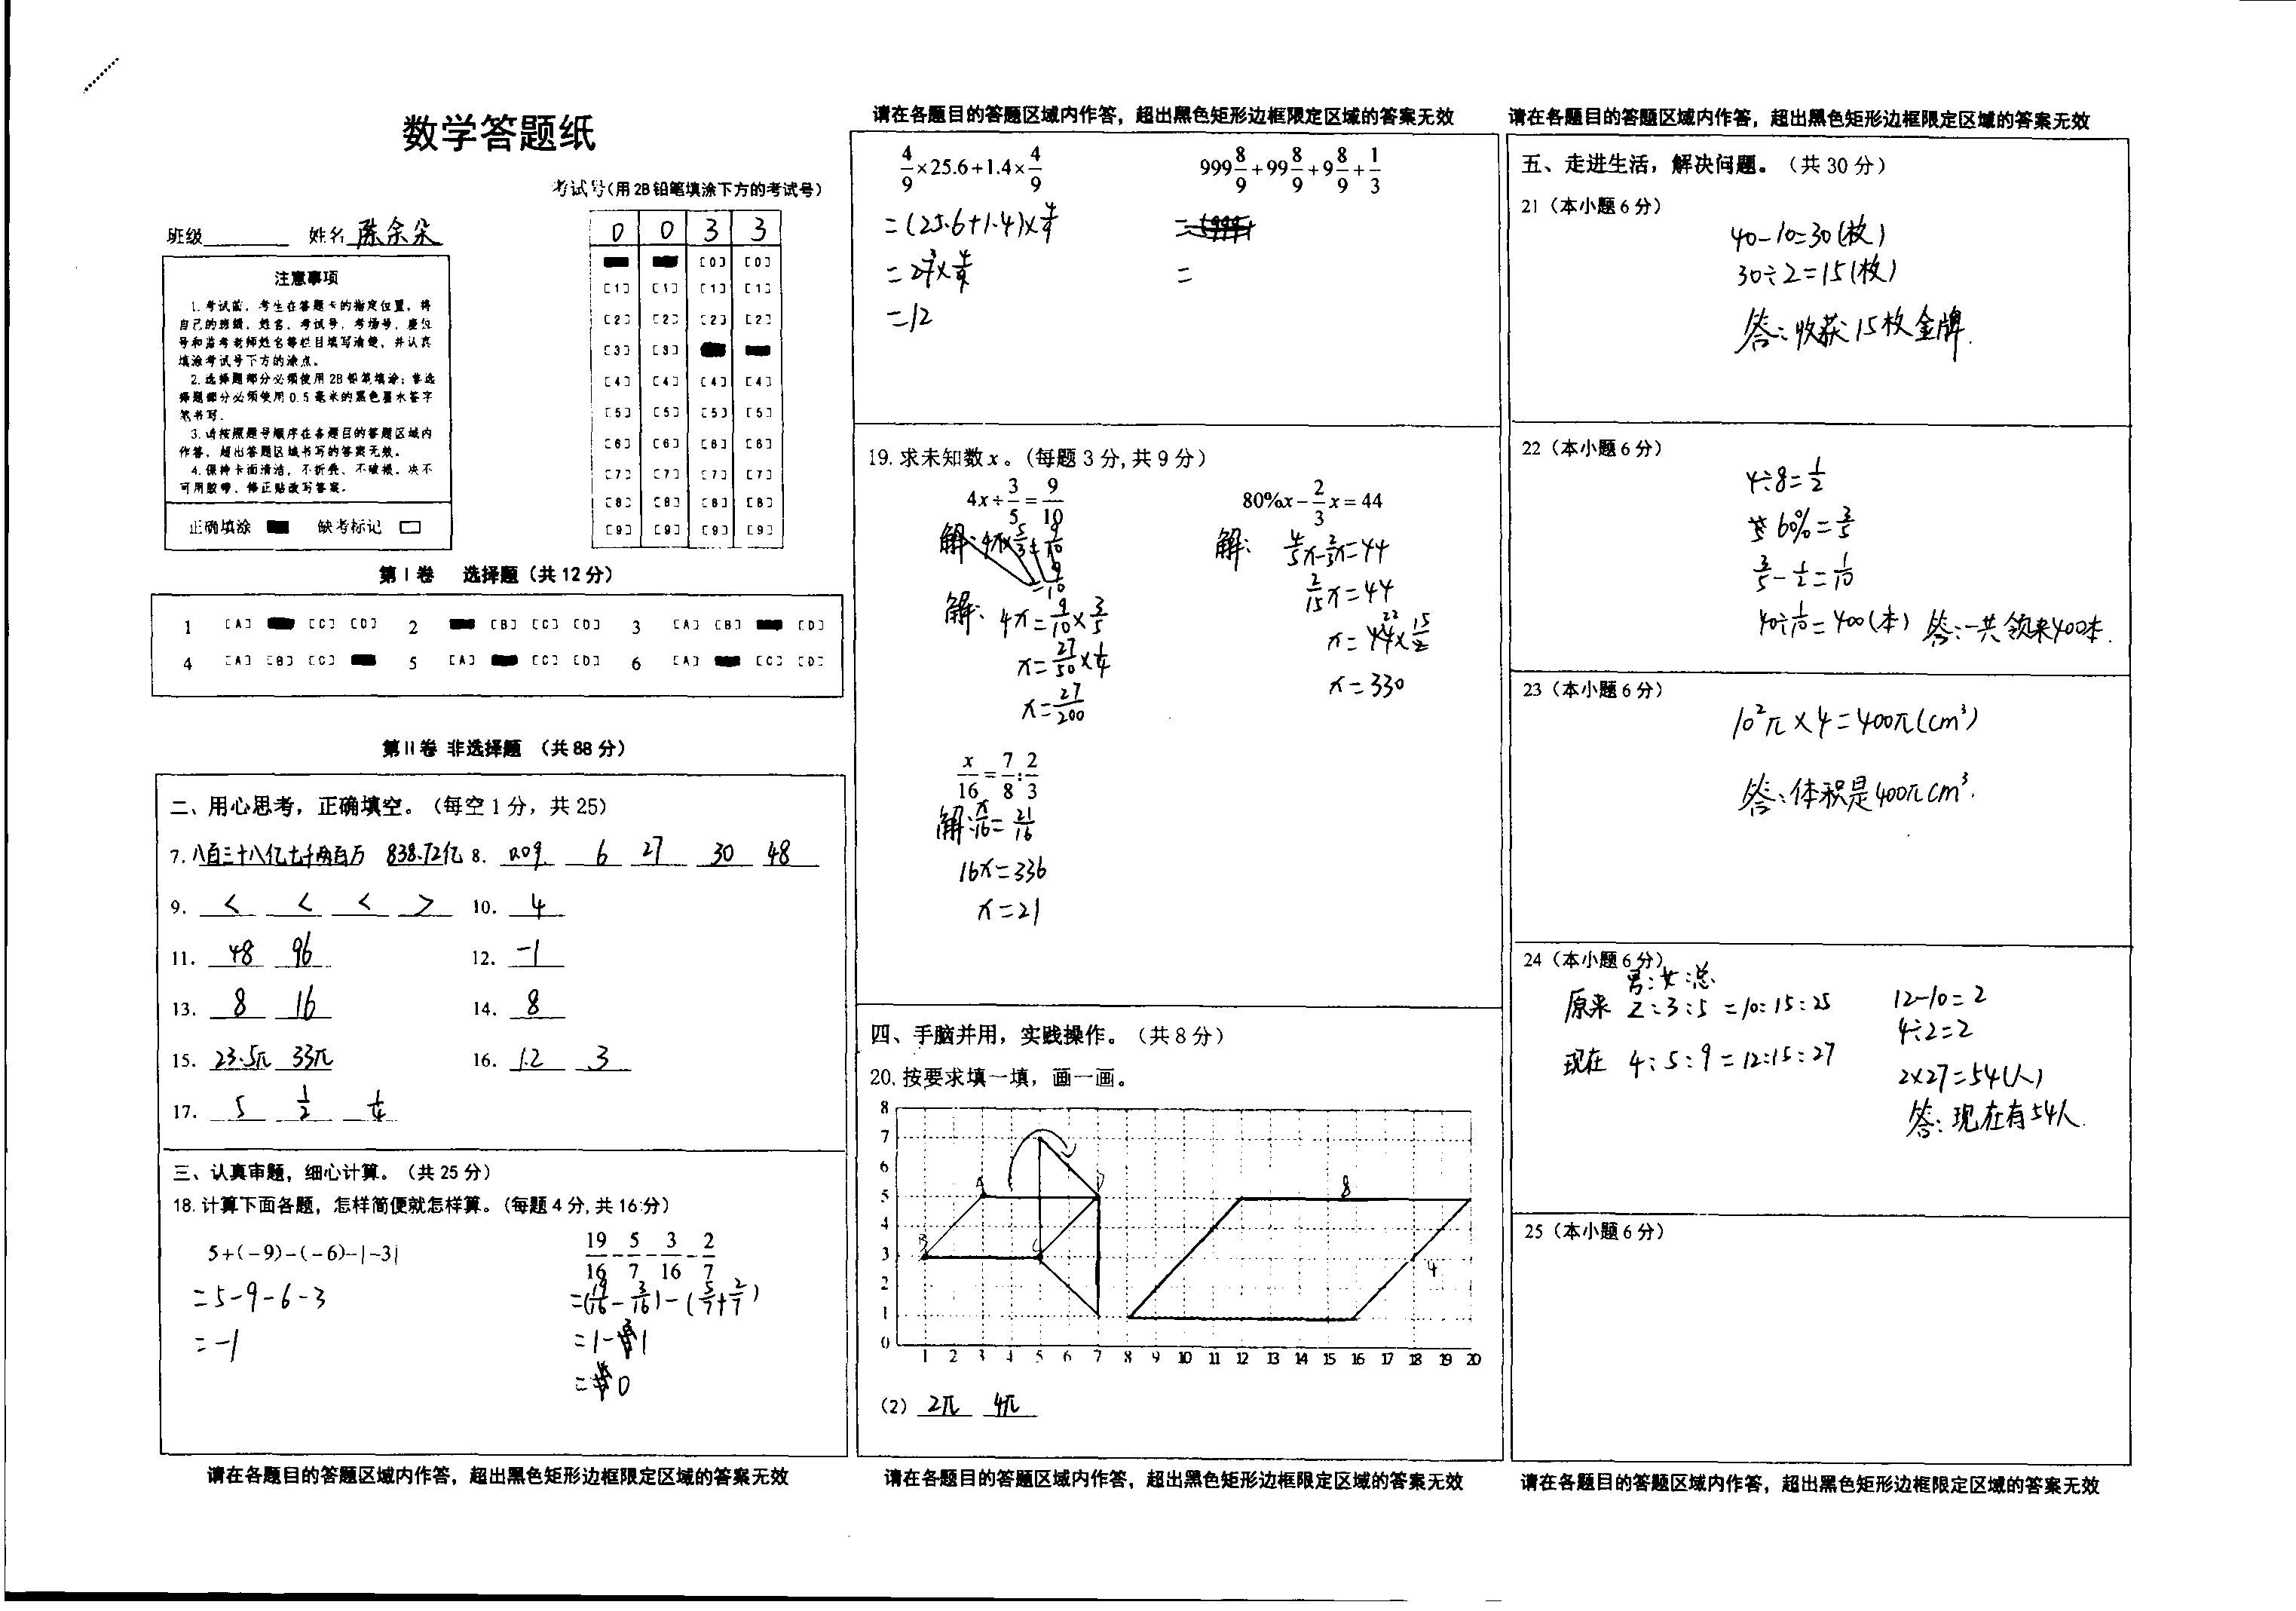 数学答题纸
考试号(用2B铅笔填涂下方的考试号)
班级 姓名 陈余朵
0 0 3 3
[0] [0]
[1] [1] [1] [1]
[2] [2] [2] [2]
[3] [3]
[4] [4] [4] [4]
[5] [5] [5] [5]
[6] [6] [6] [6]
[7] [7] [7] [7]
[8] [8] [8] [8]
[9] [9] [9] [9]
注意事项
1.考试前,考生在答题卡的指定位置,将
自己的班级、姓名、考试号、考场号、座位
号和监考老师姓名等栏目填写清楚,并认真
填涂考试号下方的涂点。
2.选择题部分必须使用2B铅笔填涂;非选
择题部分必须使用0.5毫米的黑色墨水签字
笔书写.
3.请按照题号顺序在各题目的答题区域内
作答,超出答题区域书写的答案无效。
4.保持卡面清洁,不折叠、不破损。决不
可用胶带、修正贴改写答案。
正确填涂 缺考标记
第Ⅰ卷 选择题(共12分)
1 [A] [C] [D] 2 [B] [C] [D] 3 [A] [B] [D]
4 [A] [B] [C] 5 [A] [C] [D] 6 [A] [C] [D]
第II卷 非选择题 (共88分)
二、用心思考,正确填空。(每空1分,共25)
7. 八百三十八亿七千两百万 838.72亿 8. 6 27 30 48
9. < < < > 10. 4
11. 48 96 12. -1
13. 8 16 14. 8
15. 23.5π 33π 16. 1.2 3
17. 5 1/2 1/4
三、认真审题,细心计算。(共25分)
18.计算下面各题,怎样简便就怎样算。(每题4分,共16分)
5+(-9)-(-6)-|-3| 19/16-5/7-3/16-2/7
=5-9-6-3 =(19/16-3/16)-(5/7+2/7)
=-1 =1-1
=0
请在各题目的答题区域内作答,超出黑色矩形边框限定区域的答案无效
请在各题目的答题区域内作答,超出黑色矩形边框限定区域的答案无效
4/9×25.6+1.4×4/9 999 8/9+99 8/9+9 8/9+1/3
=(25.6+1.4)×4/9 =
=27×4/9 =
=12
19.求未知数x。(每题3分,共9分)
4x÷3/5=9/10 80%x-2/3x=44
解:4x×5/3=9/10 解: 4/5x-2/3x=44
=9/10 2/15x=44
解: 4x=9/10×3/5 x=44×15/2
x=27/50×1/4 22
x=27/200 x=330
x/16=7/8:2/3
解:x/16=21/16
16x=336
x=21
四、手脑并用,实践操作。(共8分)
20.按要求填一填,画一画。
8
7
6
5
4
3
2
1
0
A D
B C
8
4
1 2 3 4 5 6 7 8 9 10 11 12 13 14 15 16 17 18 19 20
(2) 2π 4π
请在各题目的答题区域内作答,超出黑色矩形边框限定区域的答案无效
请在各题目的答题区域内作答,超出黑色矩形边框限定区域的答案无效
五、走进生活,解决问题。(共30分)
21(本小题6分)
40-10=30(枚)
30÷2=15(枚)
答:收获15枚金牌.
22(本小题6分)
4÷8=1/2
60%=3/5
3/5-1/2=1/10
40÷1/10=400(本) 答:一共领来400本.
23(本小题6分)
10²π×4=400π(cm³)
答:体积是400πcm³.
24(本小题6分)
男:女:总
原来 2:3:5=10:15:25
现在 4:5:9=12:15:27
12-10=2
4÷2=2
2×27=54(人)
答:现在有54人.
25(本小题6分)
请在各题目的答题区域内作答,超出黑色矩形边框限定区域的答案无效